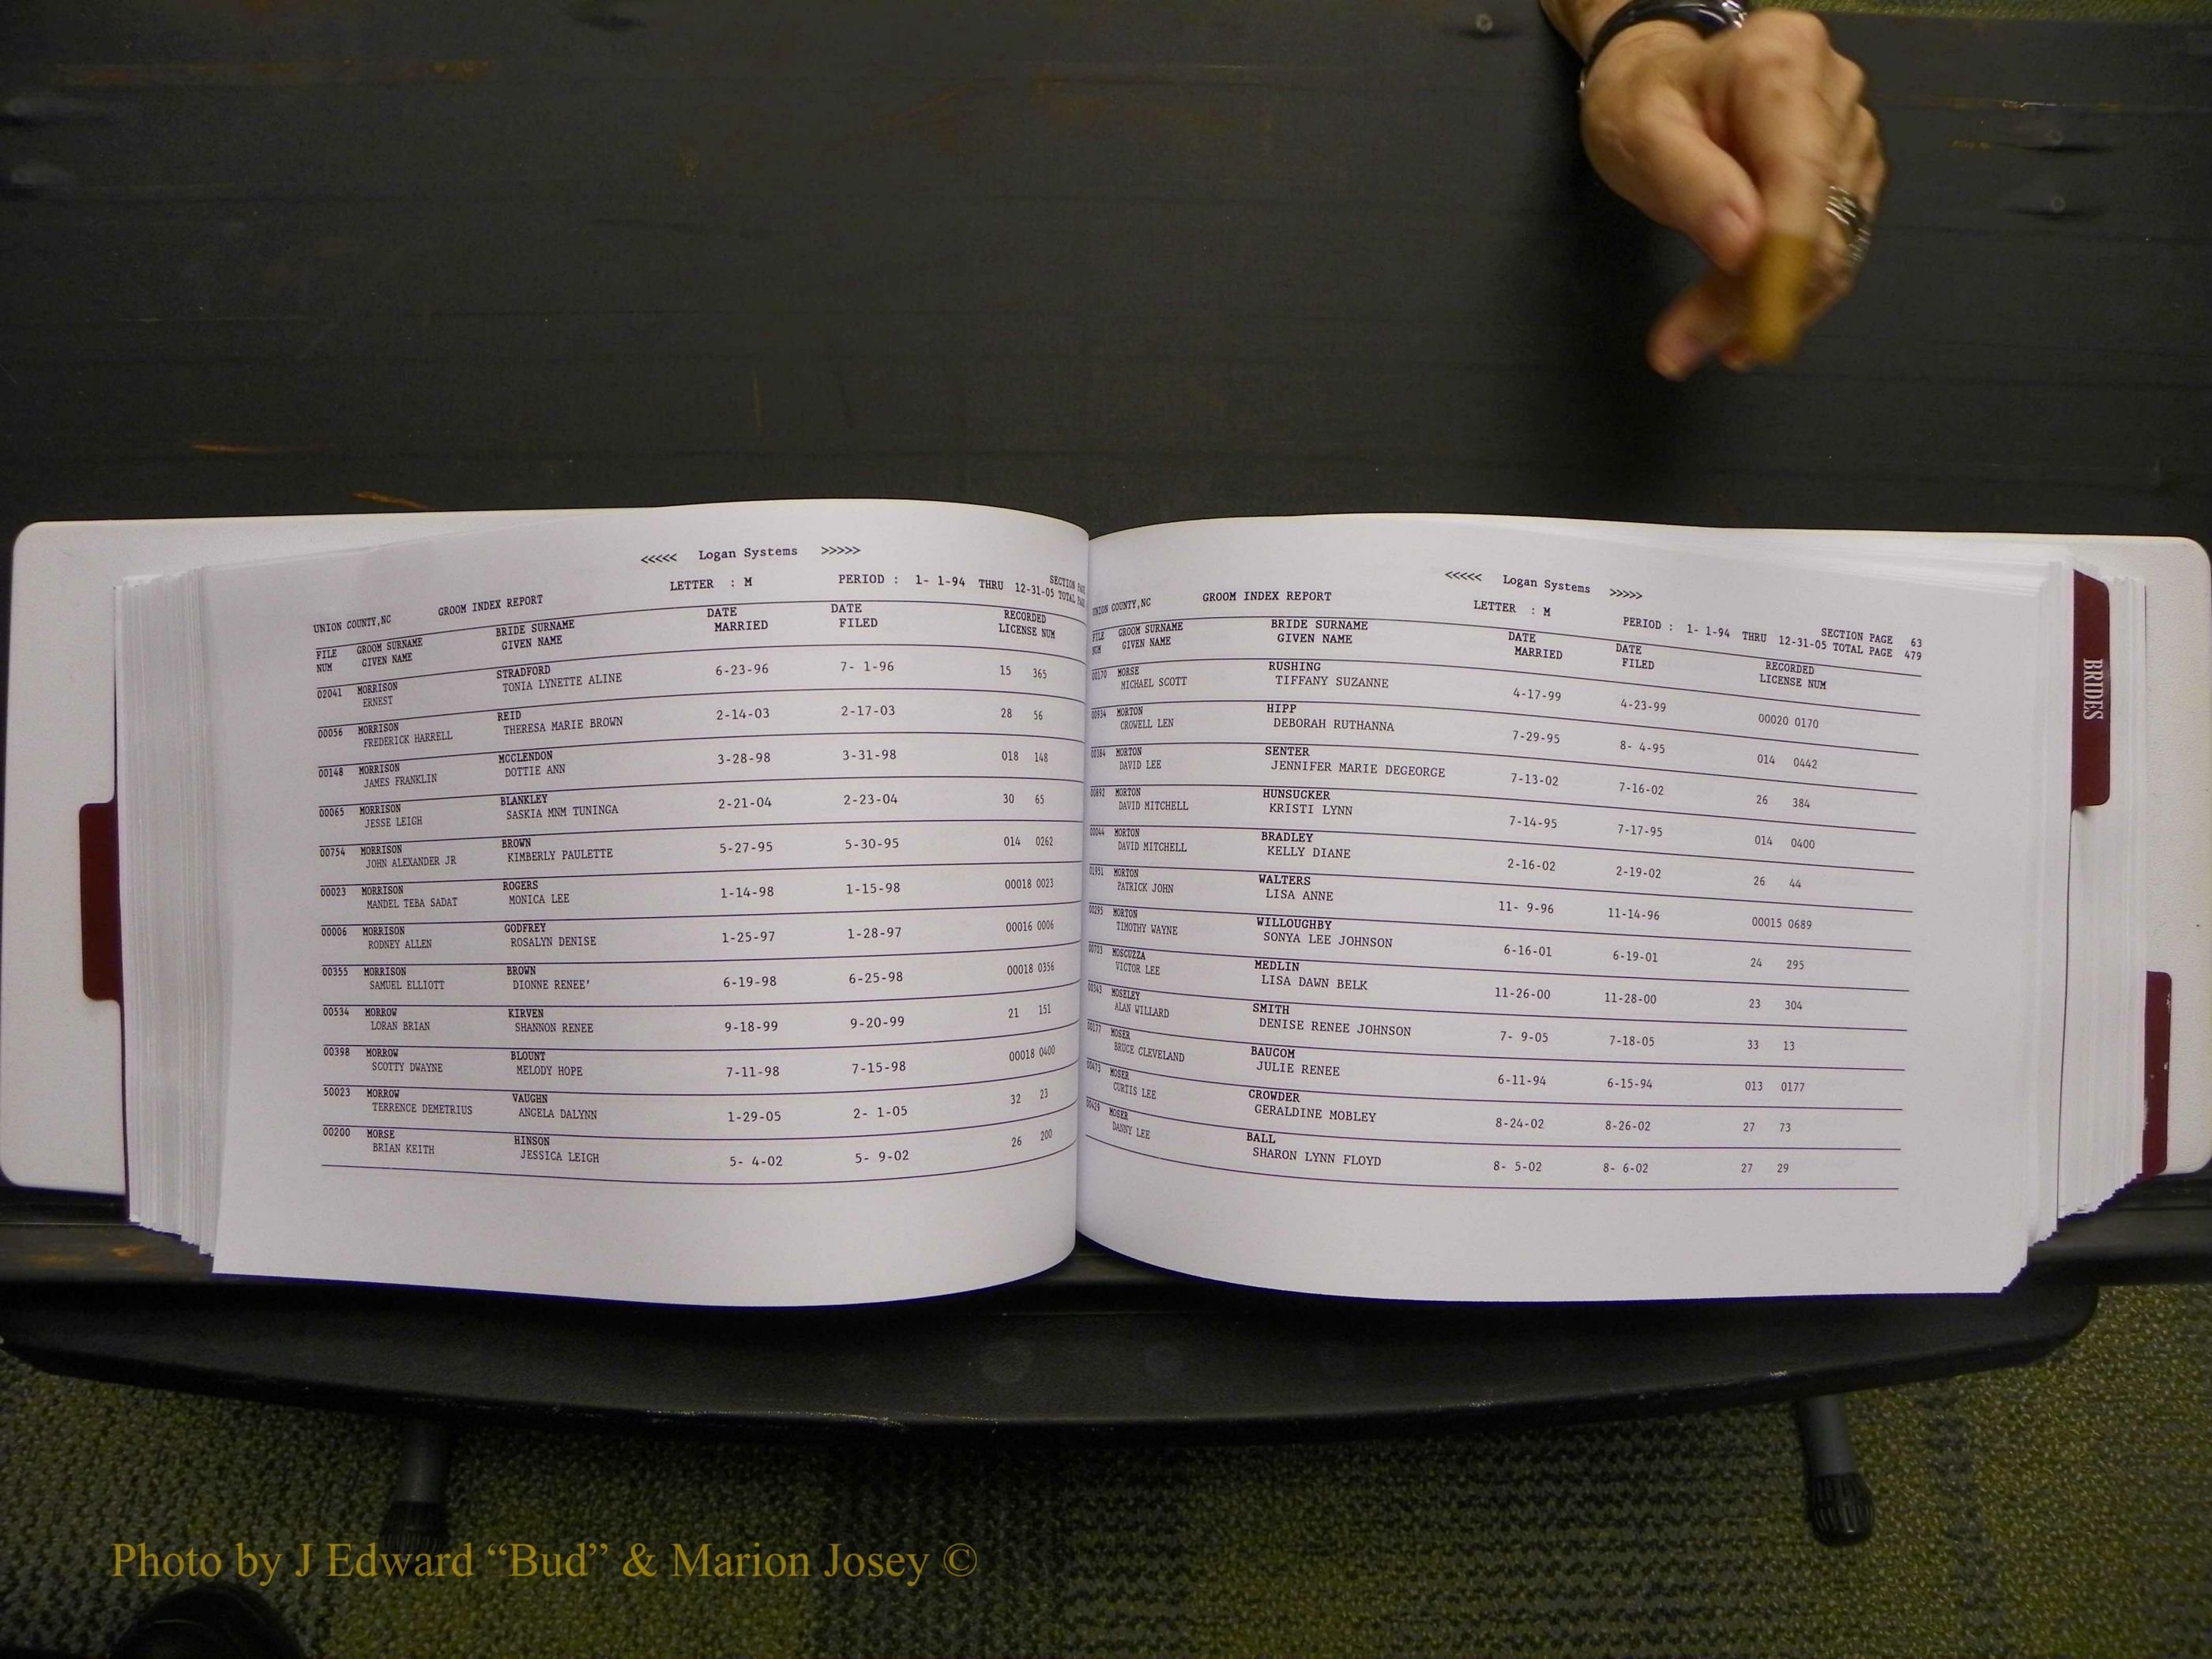 <<<<< Logan Systems >>>>>
LETTER : M PERIOD : 1- 1-94 THRU 12-31-05 TOTAL
SECTION
UNION COUNTY,NC GROOM INDEX REPORT
FILE NUM GROOM SURNAME GIVEN NAME BRIDE SURNAME GIVEN NAME DATE MARRIED DATE FILED RECORDED LICENSE NUM
02041 MORRISON STRADFORD
ERNEST TONIA LYNETTE ALINE 6-23-96 7- 1-96 15 365
00056 MORRISON REID
FREDERICK HARRELL THERESA MARIE BROWN 2-14-03 2-17-03 28 56
00148 MORRISON MCCLENDON
JAMES FRANKLIN DOTTIE ANN 3-28-98 3-31-98 018 148
00065 MORRISON BLANKLEY
JESSE LEIGH SASKIA MNM TUNINGA 2-21-04 2-23-04 30 65
00754 MORRISON BROWN
JOHN ALEXANDER JR KIMBERLY PAULETTE 5-27-95 5-30-95 014 0262
00023 MORRISON ROGERS
MANDEL TEBA SADAT MONICA LEE 1-14-98 1-15-98 00018 0023
00006 MORRISON GODFREY
RODNEY ALLEN ROSALYN DENISE 1-25-97 1-28-97 00016 0006
00355 MORRISON BROWN
SAMUEL ELLIOTT DIONNE RENEE' 6-19-98 6-25-98 00018 0356
00534 MORROW KIRVEN
LORAN BRIAN SHANNON RENEE 9-18-99 9-20-99 21 151
00398 MORROW BLOUNT
SCOTTY DWAYNE MELODY HOPE 7-11-98 7-15-98 00018 0400
50023 MORROW VAUGHN
TERRENCE DEMETRIUS ANGELA DALYNN 1-29-05 2- 1-05 32 23
00200 MORSE HINSON
BRIAN KEITH JESSICA LEIGH 5- 4-02 5- 9-02 26 200
<<<<< Logan Systems >>>>>
UNION COUNTY,NC GROOM INDEX REPORT LETTER : M
PERIOD : 1- 1-94 THRU 12-31-05 TOTAL PAGE 479
SECTION PAGE 63
FILE NUM GROOM SURNAME GIVEN NAME BRIDE SURNAME GIVEN NAME DATE MARRIED DATE FILED RECORDED LICENSE NUM
00170 MORSE RUSHING
MICHAEL SCOTT TIFFANY SUZANNE 4-17-99 4-23-99 00020 0170
00934 MORTON HIPP
CROWELL LEN DEBORAH RUTHANNA 7-29-95 8- 4-95 014 0442
00384 MORTON SENTER
DAVID LEE JENNIFER MARIE DEGEORGE 7-13-02 7-16-02 26 384
00892 MORTON HUNSUCKER
DAVID MITCHELL KRISTI LYNN 7-14-95 7-17-95 014 0400
00044 MORTON BRADLEY
DAVID MITCHELL KELLY DIANE 2-16-02 2-19-02 26 44
01951 MORTON WALTERS
PATRICK JOHN LISA ANNE 11- 9-96 11-14-96 00015 0689
00295 MORTON WILLOUGHBY
TIMOTHY WAYNE SONYA LEE JOHNSON 6-16-01 6-19-01 24 295
00703 MOSCUZZA MEDLIN
VICTOR LEE LISA DAWN BELK 11-26-00 11-28-00 23 304
00343 MOSELEY SMITH
ALAN WILLARD DENISE RENEE JOHNSON 7- 9-05 7-18-05 33 13
00177 MOSER BAUCOM
BRUCE CLEVELAND JULIE RENEE 6-11-94 6-15-94 013 0177
00473 MOSER CROWDER
CURTIS LEE GERALDINE MOBLEY 8-24-02 8-26-02 27 73
00429 MOSER BALL
DANNY LEE SHARON LYNN FLOYD 8- 5-02 8- 6-02 27 29
BRIDES
Photo by J Edward “Bud” & Marion Josey ©